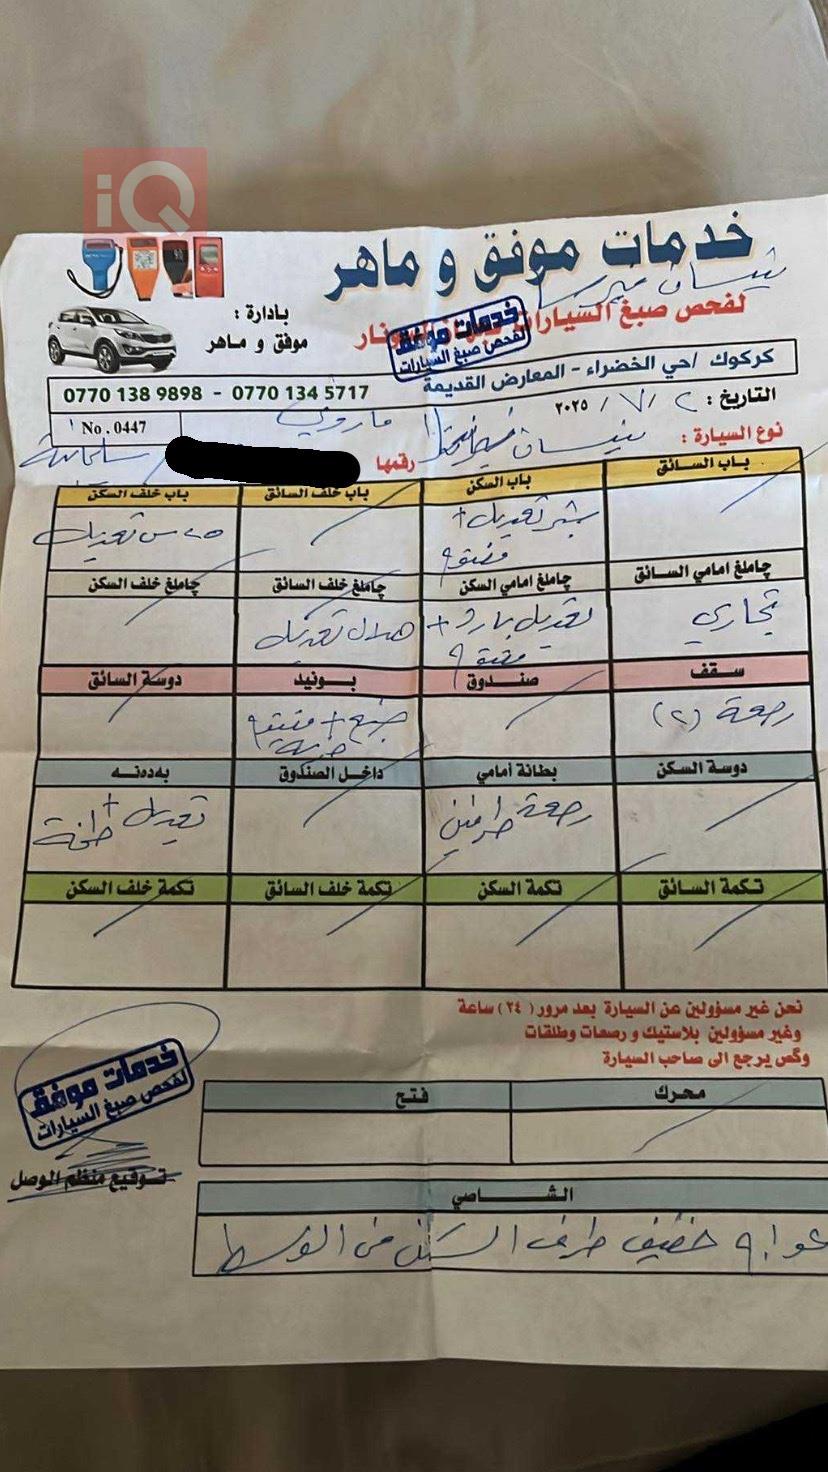 iQ
خدمات موفق و ماهر
نيسان
لفحص صبغ السيارات
بادارة :
موفق و ماهر
خدمات موفق
لفحص صبغ السيارات
كركوك /حي الخضراء - المعارض القديمة
0770 138 9898 - 0770 134 5717
التاريخ : ٢ / ٧ / ٢٠٢٥
No . 0447
نوع السيارة : نيسان ماروني رقمها سليمانية
باب السائق باب السكن باب خلف السائق باب خلف السكن
تعديل +
تعديل
چاملغ امامي السائق چاملغ امامي السكن چاملغ خلف السائق چاملغ خلف السكن
تجاري تعديل بارد + هلال تعديل
سقف صندوق بونيد دوسة السائق
رصعة (٢) صبغ +
دوسة السكن بطانة أمامي داخل الصندوق بەدەنە
رصعة طرفين تعديل + طخة
تكمة السائق تكمة السكن تكمة خلف السائق تكمة خلف السكن
نحن غير مسؤولين عن السيارة بعد مرور ( ٢٤ ) ساعة
وغير مسؤولين بلاستيك و رصعات وطلقات
وگص يرجع الى صاحب السيارة
خدمات موفق
لفحص صبغ السيارات
توقيع منظم الوصل
محرك فتح
الشاصي
خفيف طرف السكن من الوسط